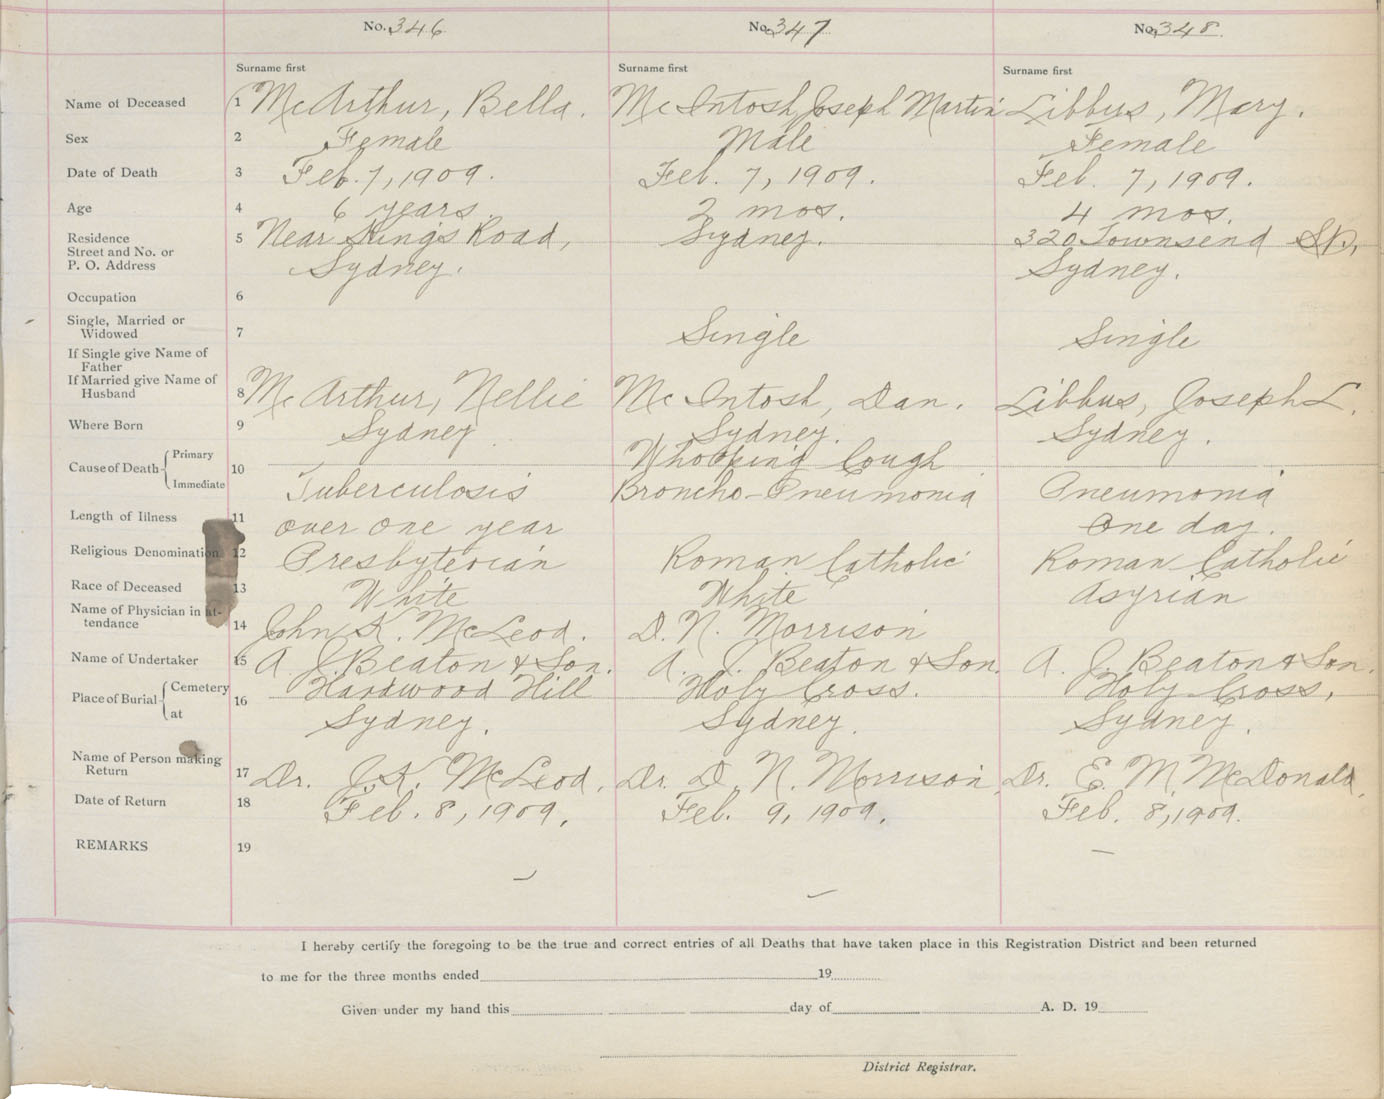 No. 346 No. 347 No. 348
Surname first Surname first Surname first
Name of Deceased 1 McArthur, Bella. McIntosh Joseph Martin Libbus, Mary.
Sex 2 Female Male Female
Date of Death 3 Feb. 7, 1909. Feb. 7, 1909. Feb. 7, 1909.
Age 4 6 years. 2 mos. 4 mos.
Residence 5 Near Kings Road, Sydney. 320 Townsend St,
Street and No. or
P. O. Address Sydney. Sydney.
Occupation 6
Single, Married or
Widowed 7 Single Single
If Single give Name of
Father
If Married give Name of
Husband 8 McArthur, Nellie McIntosh, Dan. Libbus, Joseph L.
Where Born 9 Sydney Sydney. Sydney.
Cause of Death Primary 10 Whooping Cough
Immediate Tuberculosis Broncho-Pneumonia Pneumonia
Length of Illness 11 over one year One day.
Religious Denomination 12 Presbyterian Roman Catholic Roman Catholic
Race of Deceased 13 White White Asyrian
Name of Physician in at-
tendance 14 John K. McLeod. D. N. Morrison
Name of Undertaker 15 A. J. Beaton & Son. A. J. Beaton & Son. A. J. Beaton & Son.
Place of Burial Cemetery 16 Hardwood Hill Holy Cross. Holy Cross,
at Sydney. Sydney. Sydney.
Name of Person making
Return 17 Dr. J. K. McLeod. Dr. D. N. Morrison. Dr. E. M. McDonald.
Date of Return 18 Feb. 8, 1909. Feb. 9, 1909. Feb. 8, 1909.
REMARKS 19
I hereby certify the foregoing to be the true and correct entries of all Deaths that have taken place in this Registration District and been returned
to me for the three months ended 19
Given under my hand this day of A. D. 19
District Registrar.